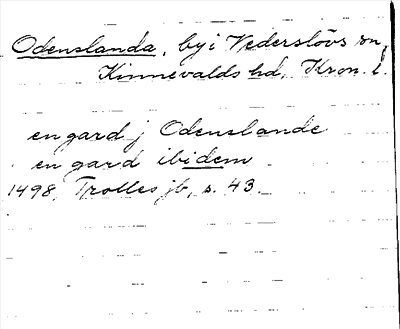 Odenslanda, by i Vederslövs sn,
Kinnevalds hd, Kron. l.
en gard j Odenslande
en gard ibidem
1498, Trolles jb, s. 43.